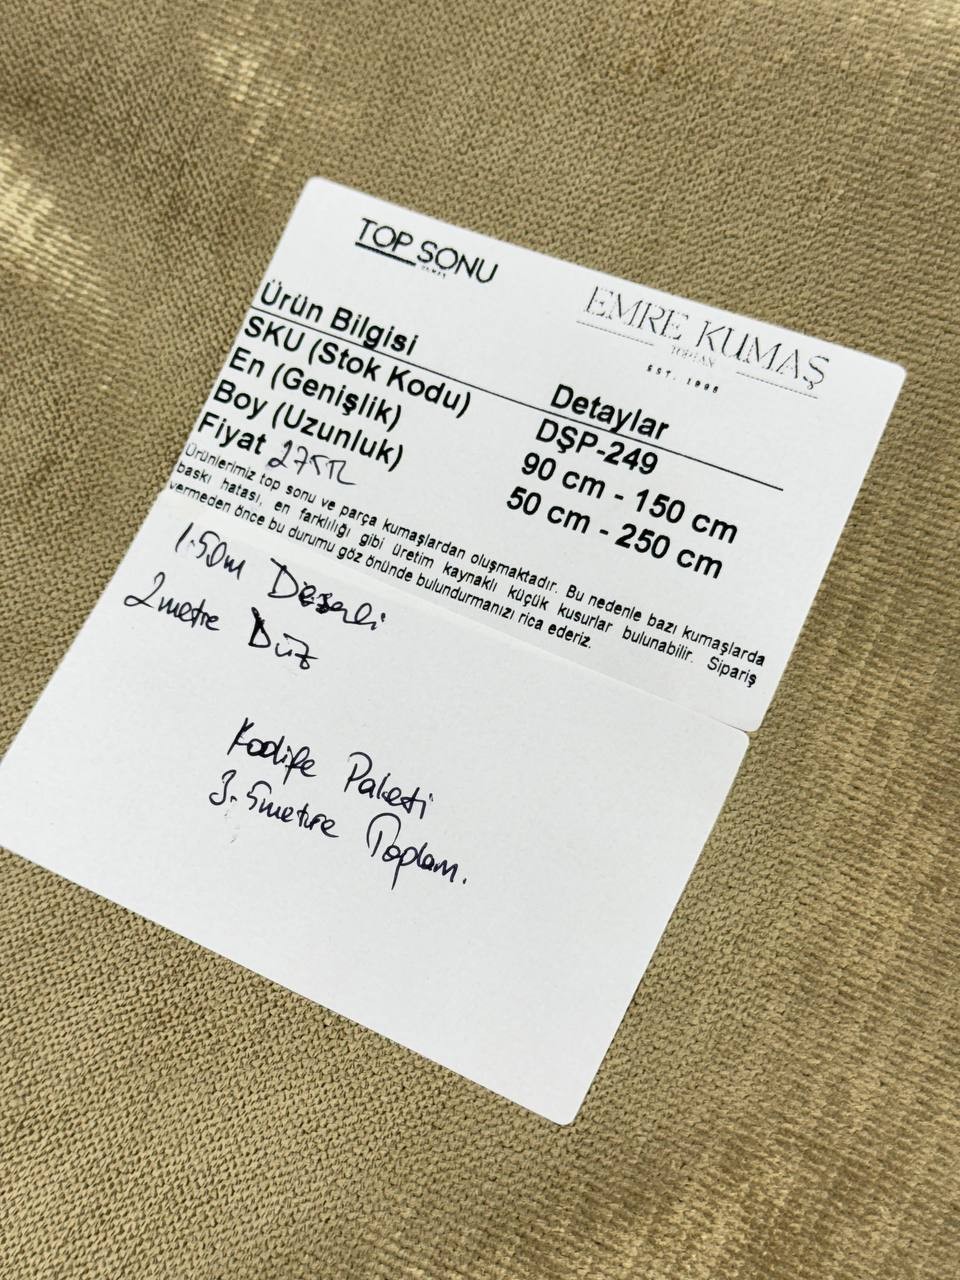 TOP SONU
EMRE KUMAŞ
TOPTAN
EST. 1996
Ürün Bilgisi Detaylar
SKU (Stok Kodu) DŞP-249
En (Genişlik) 90 cm - 150 cm
Boy (Uzunluk) 50 cm - 250 cm
Fiyat 275TL
Ürünlerimiz top sonu ve parça kumaşlardan oluşmaktadır. Bu nedenle bazı kumaşlarda
baskı hatası, en farklılığı gibi üretim kaynaklı küçük kusurlar bulunabilir. Sipariş
vermeden önce bu durumu göz önünde bulundurmanızı rica ederiz.
1.50m Desenli
2 metre Düz
Kadife Paketi
3.5metre Toplam.